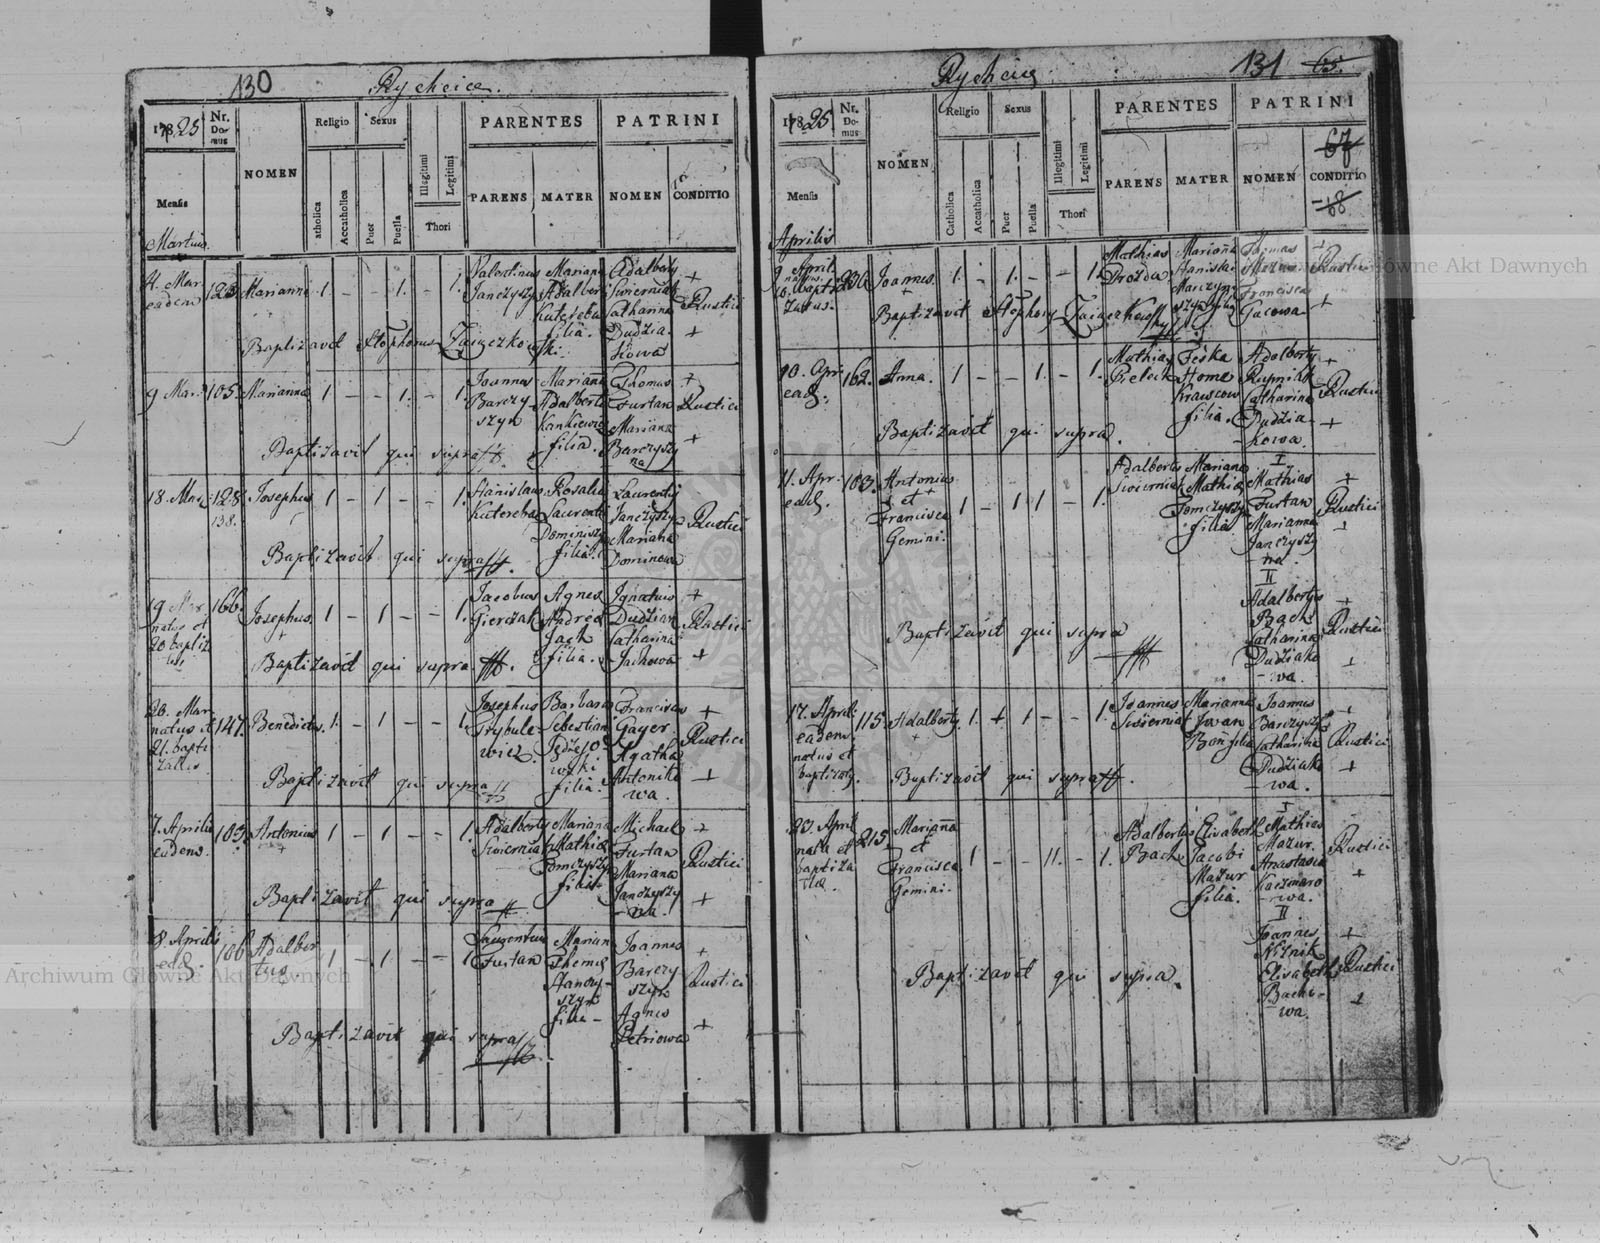 130
Rycheice.
1825
Nr.
Do-
mus
NOMEN
Religio
Sexus
PARENTES
PATRINI
Mensis
atholica
Accatholica
Puer
Puella
Illegitimi
Legitimi
Thori
PARENS
MATER
NOMEN
CONDITIO
Martius.
4. Mar
eadem
123
Marianna
1 - - 1. - 1.
Valentinus
Janczysz
Mariana
Adalberti
Kutereba
filia.
Adalbertg
Swierniak
Catharina
Dudzia
kowa
+
Rustici
+
Baptizavit Stephanus Zajączkow
ski.
9 Mar.
105.
Marianna
1 - - 1. - 1.
Joannes
Barczy
szyn
Mariana
Adalberti
Kankiewicz
filia.
Thomas
Furtan
Mariana
Barczysz
na
+
Rustici
+
Baptizavit qui supra
18. Mar
128
138.
Josephus
1 - 1 - - 1.
Stanislaus
Kutereba
Rosalia
Laurenti
Dominiszy
filia.
Laurentig
Janczysz
Mariana
Dominowa
Rustici
Baptizavit qui supra
19 Mar
natus et
20 baptiz
tus
166.
Josephus.
+
1 - 1 - - 1.
Jacobus
Gierczak
Agnes
Andrea
Jach
filia.
Ignatius
Dudziak
Catharina
Jachowa
+
Rustici
+
Baptizavit qui supra
20. Mar
natus et
21. bapti
zatus
147.
Benedictus.
1. - 1 - - 1.
Josephus
Prybule-
wicz.
Barbara
Sebestian
Jędzejo-
wski
filia.
Franciscus
Gayer
Agatha
Antonika
wa.
+
Rustici
+
Baptizavit qui supra
7. Aprilis
eadem.
103.
Antonius
+
1 - 1 - - 1.
Adalbertg
Swiernia
Mariana
Mathia
Tomczysz
filia
Michael
Furtan
Mariana
Janczyszy
-na.
+
Rustici
+
Baptizavit qui supra
8. Aprilis
ead.
106
Adalber
tus
1 - 1 - - 1
Laurentius
Furtan
Marian
Thoma
Stanczy-
szyn
filia-
Joannes
Barczy
szyn
Agnes
Petriowa
+
Rustici
+
Baptizavit qui supra
131
65.
1825
Nr.
Do-
mus
NOMEN
Religio
Sexus
PARENTES
PATRINI
67
Mensis
Catholica
Accatholica
Puer
Puella
Illegitimi
Legitimi
Thori
PARENS
MATER
NOMEN
CONDITIO
68
Aprilis
9 April.
natus.
10. bapti
zatus.
236
Joannes.
+
1. - 1. - - 1.
Mathias
Drozda
Mariana
Stanisla
Marczy
szyn filia
Thomas
Mazur
Francisca
Gacowa
+
Rustici
+
Baptizavit Stephany Zajączkowski
10. Apr.
ead.
162.
Anna.
1 - - 1. - 1.
Mathias
Prelecka
Feska
Homa
Krawcow
filia.
Adalbertg
Rupnik
Catharina
Dudzia-
-kowa.
+
Rustici
+
Baptizavit qui supra.
11. Apr.
ead.
103.
Antonius
+
et
Francisca
Gemini.
1 - 1 1 - 1.
Adalbertg
Swierniak
Mariana
Mathia
Tomczysz
filia
I
Mathias
Furtan
Marianna
Janczyszy
-na
II
Adalbertg
Bach
Catharina
Dudziako
-wa.
+
Rustici
+
Rustici
Baptizavit qui supra
17. Aprili
eadem.
natus et
baptizatg.
115.
Adalbertg.
+
1. + 1 - - 1.
Joannes
Swierniak
Marianna
Iwan
Bon filia
Joannes
Barczysz
Catharina
Dudziako
-wa.
+
Rustici
+
Baptizavit qui supra
23. April
nata et
baptiza
ta.
215.
Mariana
et
Francisca
Gemini.
1 - - 11. - 1.
Adalbertg
Bach
Elisabeth
Jacobi
Mazur
filia.
I
Mathias
Mazur.
Anastasia
Kaczmaro
-wa.
II.
Joannes
Niznik
Elisabeth
Bacho-
wa.
Rustici
+
+
Rustici
+
Baptizavit qui supra.
Archiwum Główne Akt Dawnych
Główne Akt Dawnych